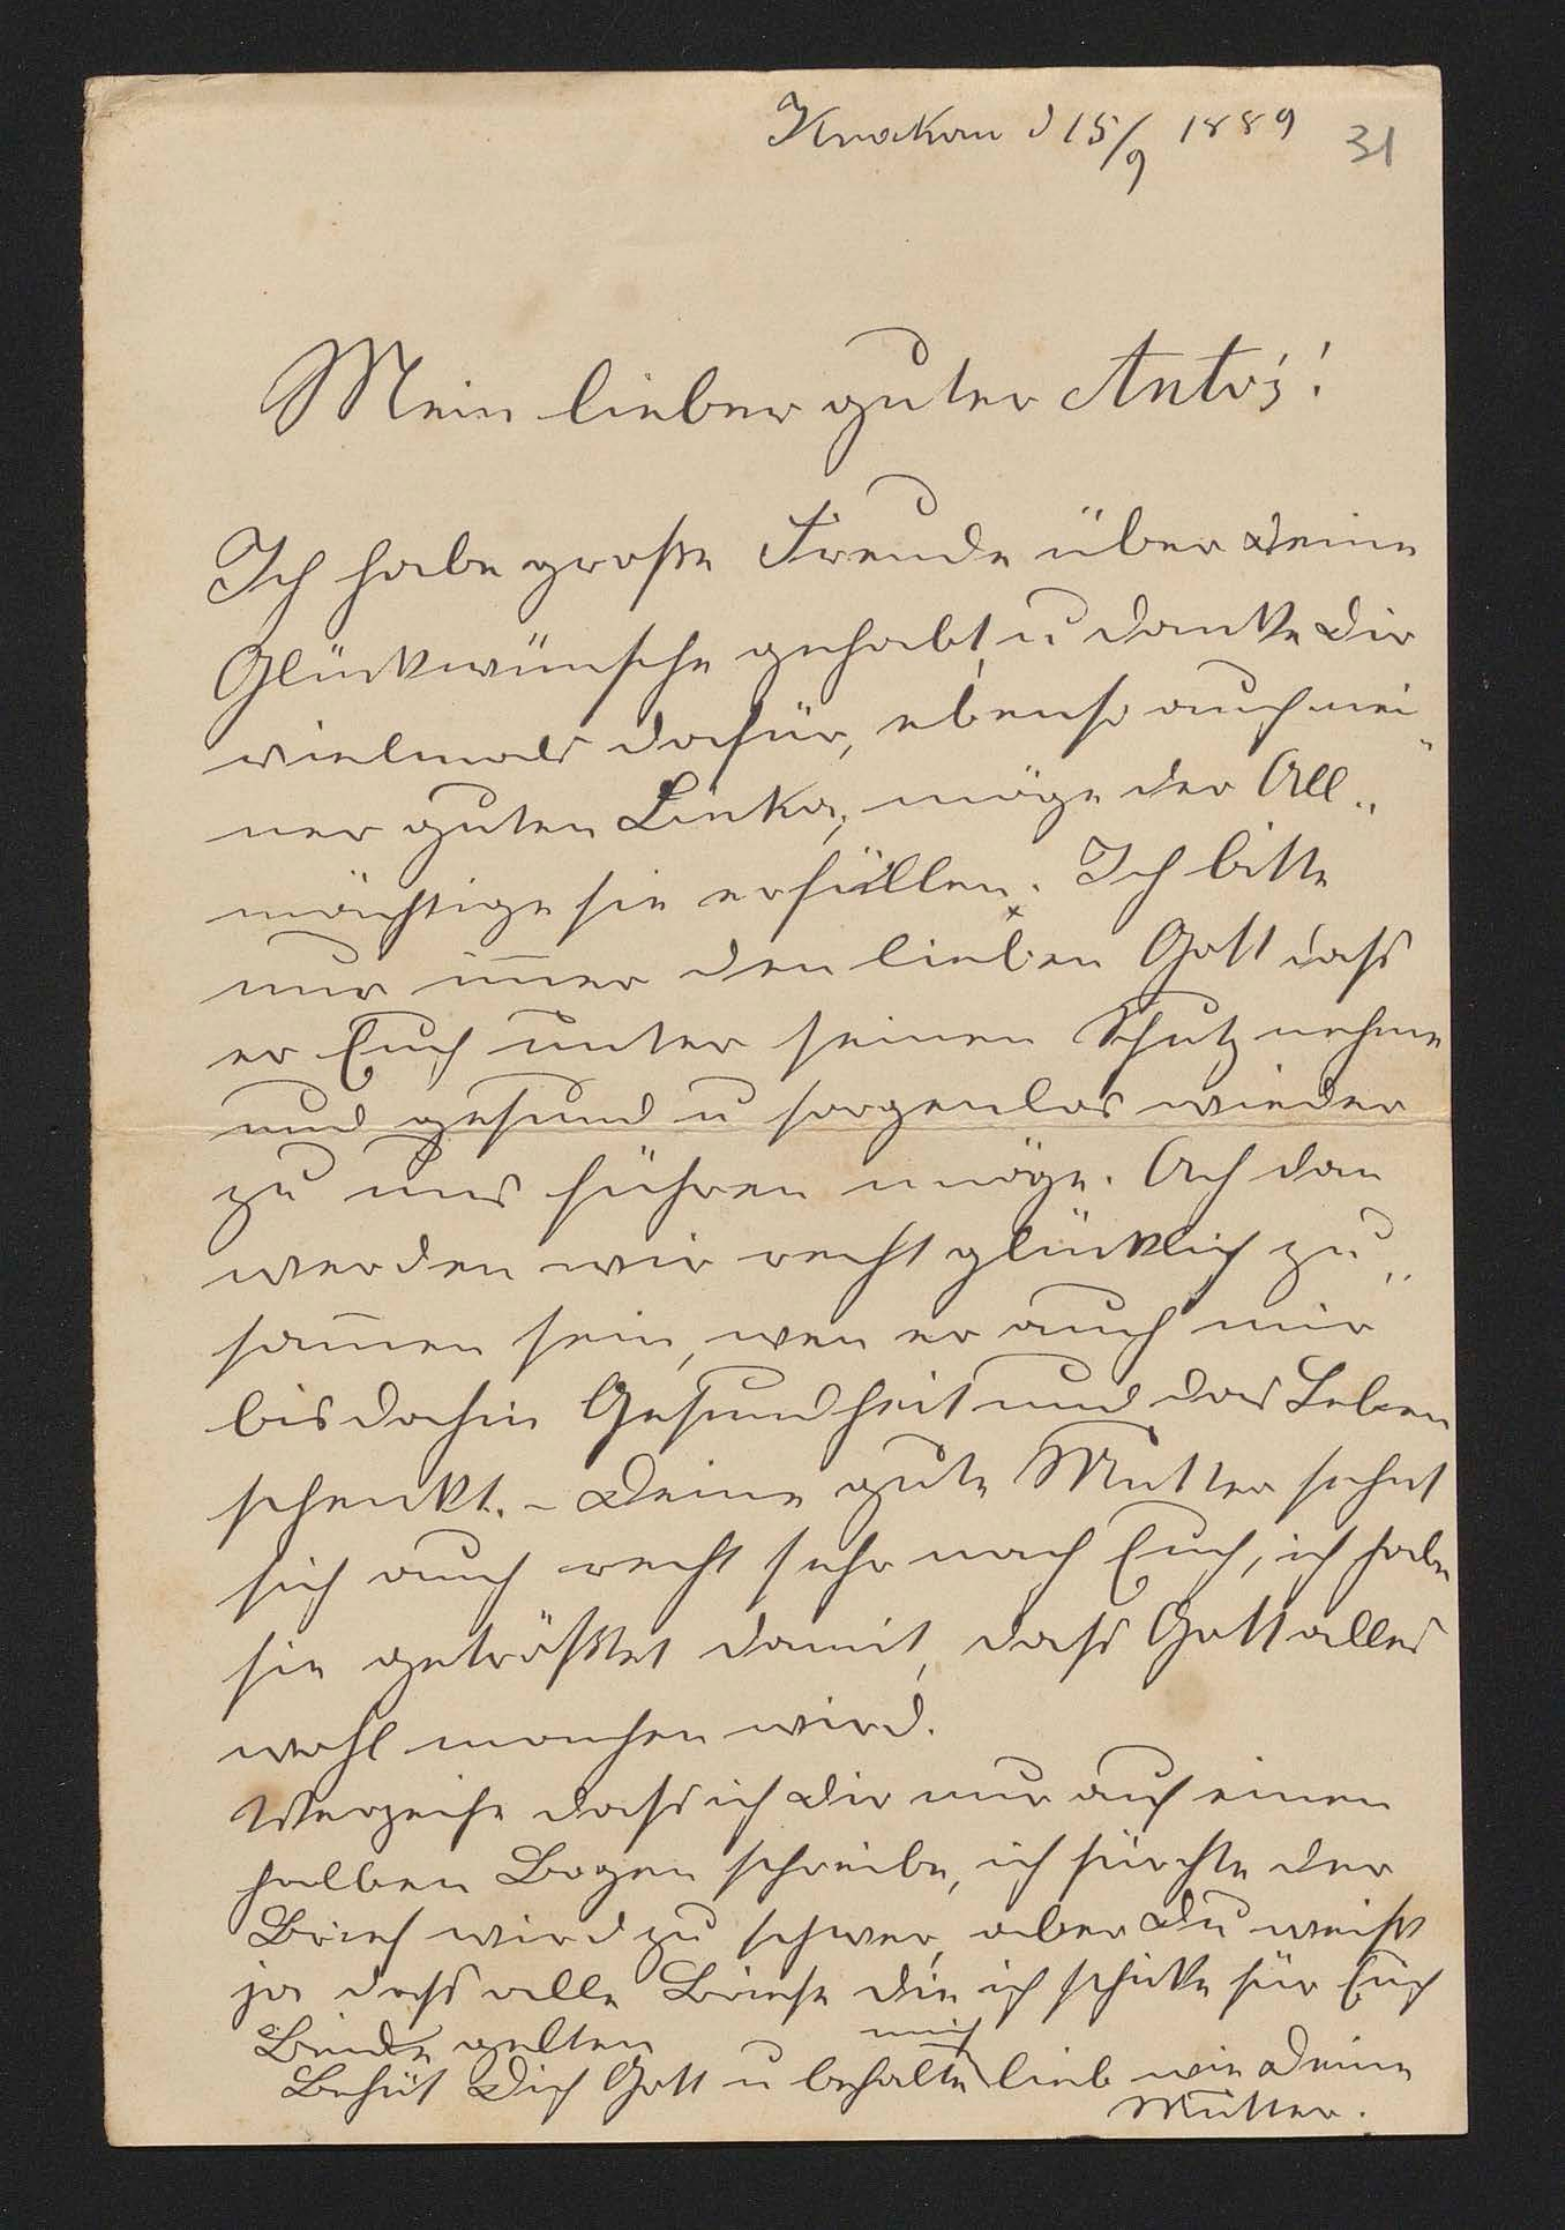 Krakau d 15/9 1889
31
Mein lieber guter Antoś!
Ich habe große Freude über Deine
Glückwünsche gehabt, u danke Dir
vielmals dafür, ebenso auch mei„
ner guten Linka, möge der All„
mächtige sie erfüllen. Ich bitte
nur im̅er den lieben Gott dass
er Euch unter seinen Schutz nehme
und gesund u sorgenlos wieder
zu uns führen möge. Ach dan
werden wir recht glücklich zu„
sam̅en sein, wen er auch mir
bis dahin Gesundheit und das Leben
schenkt. – Deine gute Mutter sehnt
sich auch recht sehr nach Euch, ich habe
sie getröstet damit, dass Gott alles
wohl machen wird.
Verzeihe dass ich Dir nur auf einen
halben Bogen schreibe, ich fürchte der
Brief wird zu schwer, aber Du weißt
ja dass alle Briefe die ich schicke für Euch
Beide gelten
mich
Behüt Dich Gott u behalte lieb wie Deine
Mutter.